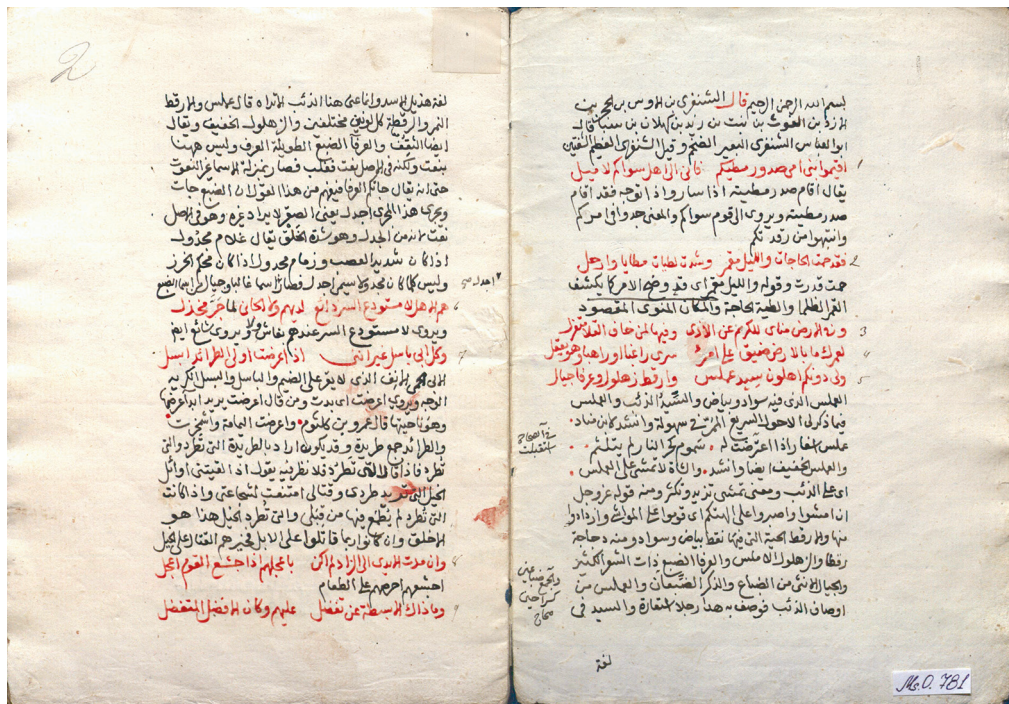 بسم الله الرحمن الرحيم قال الشنفرى بن الاوس بن الحجر بن
الازد بن الغوث بن نبت بن زيد بن كهلان بن سبا قال
ابو العباس الشنفرى البعير الضخم وقيل الشنفرى العظيم الشفتين
اقيموا بنى امى صدور مطيكم فانى الى اهل سواكم لاميل
يقال اقام صدر مطيته اذا سار واذا توجه فقد اقام
صدر مطيته ويروى الى قوم سواكم والمعنى جدوا فى امركم
وانتبهوا من رقدتكم
فقد حمت الحاجات والليل مقمر وشدت لطيات مطايا وارحل
حمت قدرت وقوله والليل مقمر اى قد وضح الامر كما يكشف
القمر الظلما والطية الحاجة والمكان المنوى المقصود
وفى الارض مناى للكريم عن الاذى وفيها لمن خاف القلا متعزل
لعمرك ما بالارض ضيق على امرئ سرى راغبا او راهبا وهو يعقل
ولى دونكم اهلون سيد عملس وارقط زهلول وعرفا جيال
العملس الذى فيه سواد وبياض والسيد الذئب والعملس
فيما ذكر لى الاحول السريع المر فى سهولة وانشد لابن
عملس اسفار اذا اعترضت له سموم كحر النار لم يتلثم
والعملس الخفيف ايضا وانشد
اى على الذئب ومعنى تمشى تزيد وتكثر ومنه قوله عز وجل
ان امشوا واصبروا على الهتكم اى قوموا على المواشى وازدادوا
منها والارقط الحية التى فيها نقط بياض وسواد ومنه دجاجة
رقطا والزهلول الاملس والعرفا الضبع ذات الشعر الكثير
والجيال الانثى من الضباع والذكر الضبعان والعملس من
اوصاف الذئب فوصف به هذا رجلا والسيد فى
لغة
لغة هذيل الاسد وانما عنى هنا الذئب الا تراه قال عملس والارقط
النمر والرقطة كل لونين مختلفين والزهلول الخفيف ويقال
والعرفا الضبع الطويلة العرف وليس ههنا
بنعت ولكنه فى الاصل نعت فغلب فصار بمنزلة الاسما غير النعوت
حتى انه يقال جاتكم العرفا فيفهم من هذا القول ان الضبع جات
ويجرى هذا المجرى اجدل يعنى الصقر لا يراد غيره وهو فى الاصل
نعت لانه من الجدل وهو شدة الخلق يقال غلام مجدول
اذا كان شديد العصب وزمام مجدول اذا كان محكم الخرز
وليس كلما كان مجدولا سمى اجدل فصار اسما غالبا وجيال من اسما الضبع
هم الاهل لا مستودع السر ذائع لديهم ولا الجانى بما جر مخذل
ويروى لا مستودع السر عندهم بفاش ولا ويروى شائع ايضا
وكل ابى باسل غير اننى اذا عرضت اولى الطرائد ابسل
الابى الحمى الانف الذى لا يقر على الضيم والباسل والبسل الكريه
الوجه ويروى اعرضت اى بدت ومن قال اعرضت يريد ابدا عرضها
وهو ناحيتها قال عمرو بن كلثوم واعرضت اليمامة واشمخرت
والطرائد جمع طريدة وقد يكون اراد بالطريدة التى تطرد والتى
تطرد فاذا يقول اذا لقيتنى اوائل
الخيل التى تريد طردى وقتالى امتنعت لشجاعتى واذا كانت
التى تطرد لم يطمع فيها من قبلى والتى تطرد الخيل هذا هو
الاخلق وان كانوا ربما قاتلوا على الابل فخيرهم القتال على الخيل
وان مدت الايدى الى الزاد لم اكن باعجلهم اذ اجشع القوم اعجل
اجشعهم احرصهم على الطعام
وما ذاك الا بسطة عن تفضل عليهم وكان الافضل المتفضل
2
Ms.O. 781